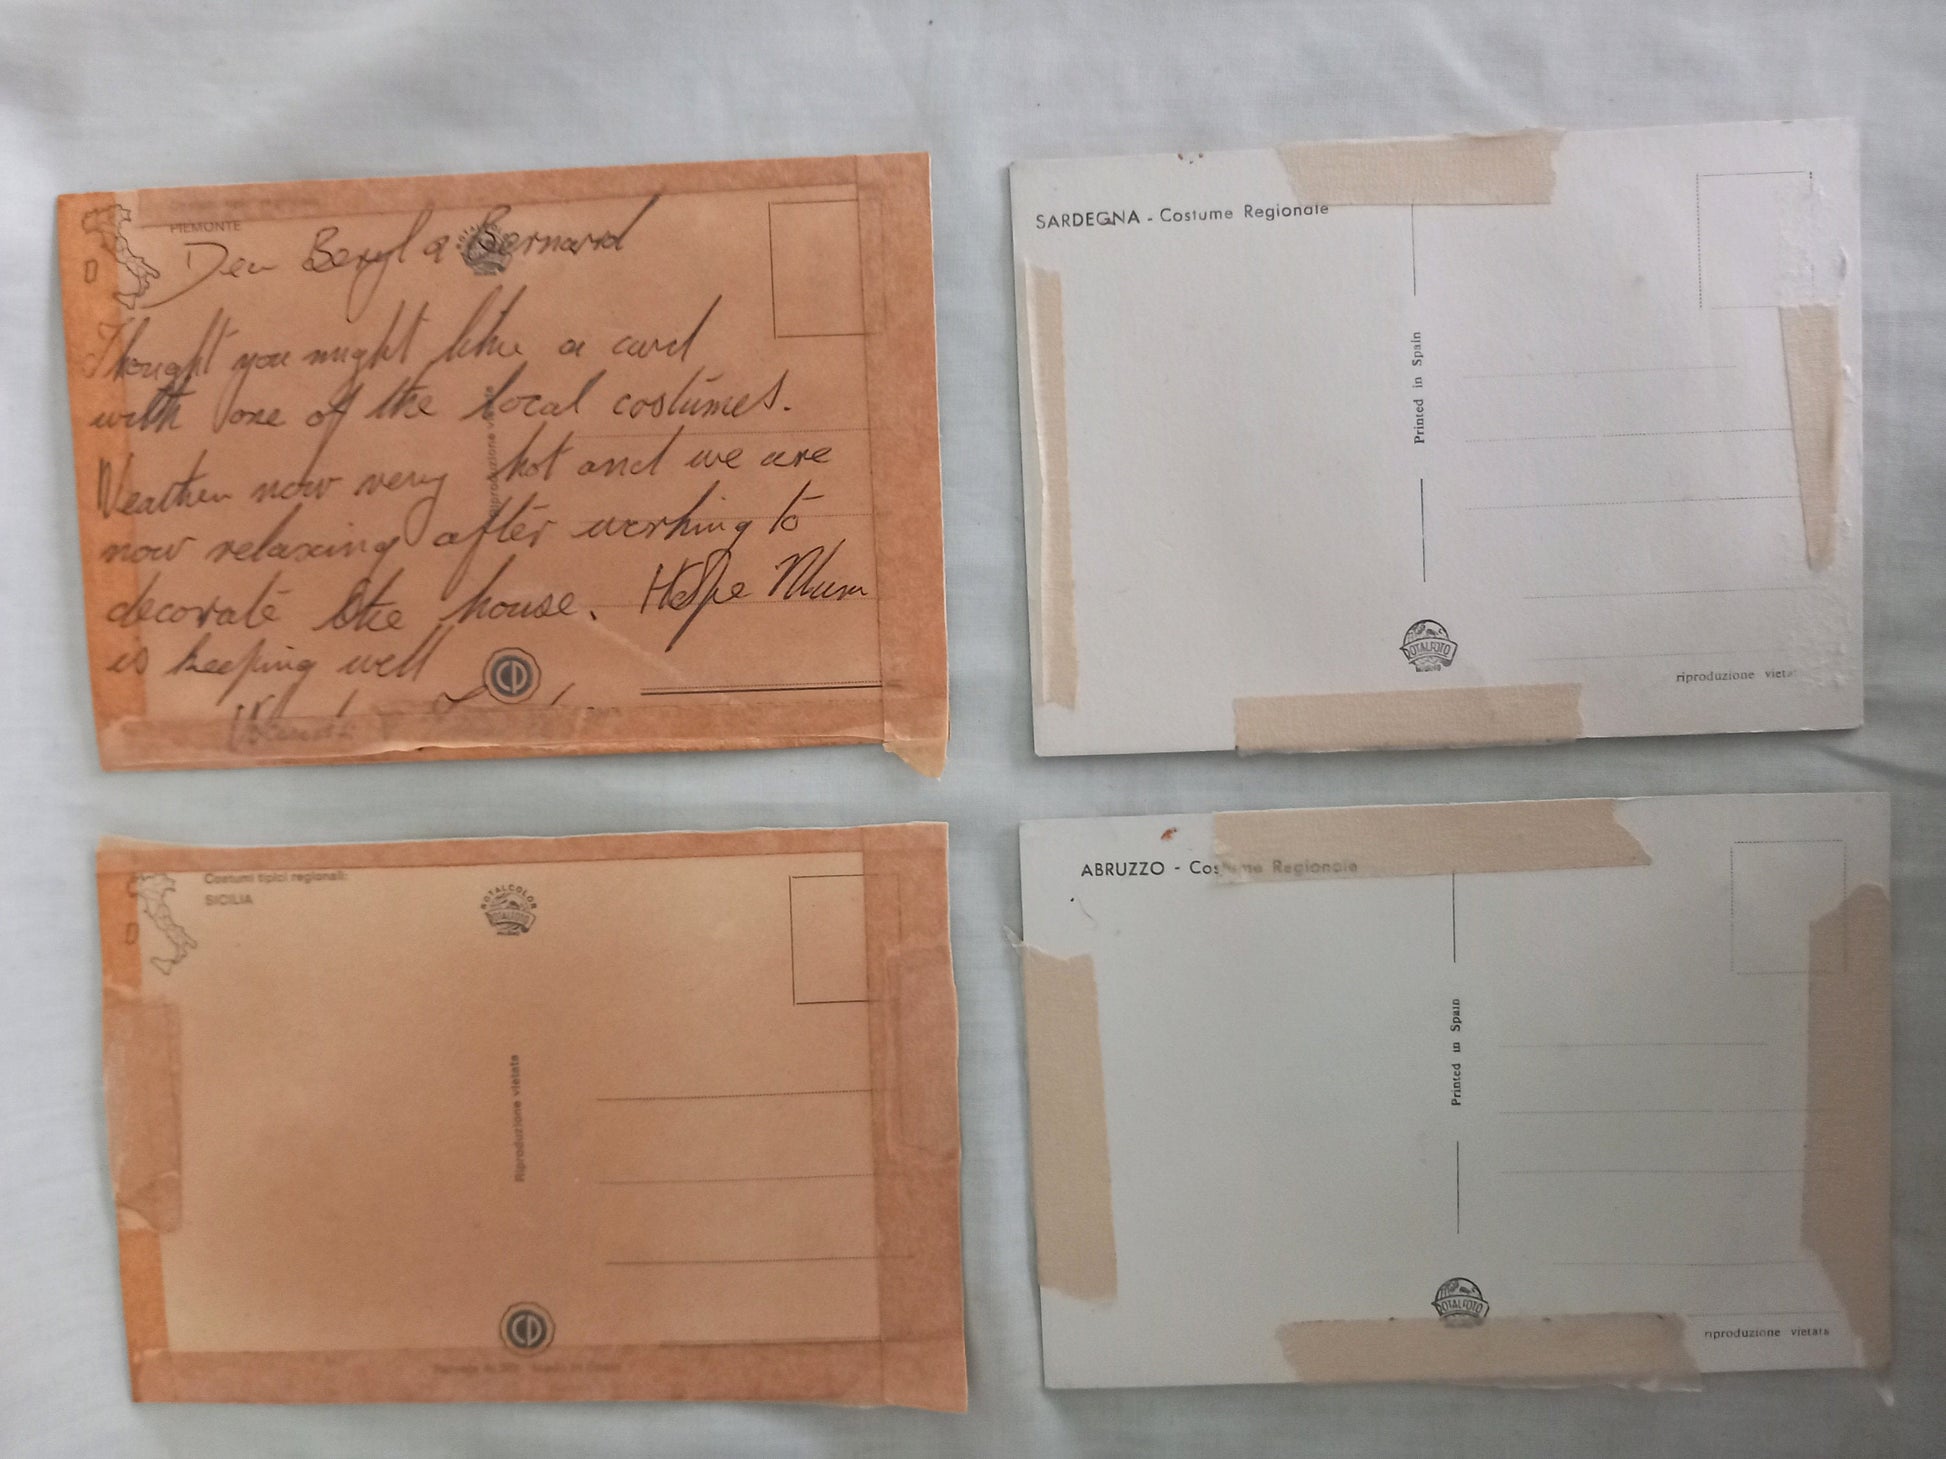 PIEMONTE
Dear Beryl & Bernard
Thought you might like a card
with one of the local costumes.
Weather now very hot and we are
now relaxing after working to
decorate the house. Hope Mum
is keeping well
Riproduzione vietata
CD
SARDEGNA - Costume Regionale
Printed in Spain
ROTALFOTO
MILANO
riproduzione vieta
Costumi tipici regionali:
SICILIA
ROTALCOLOR
ROTALFOTO
MILANO
Riproduzione vietata
CD
ABRUZZO - Costume Regionale
Printed in Spain
ROTALFOTO
riproduzione vietata